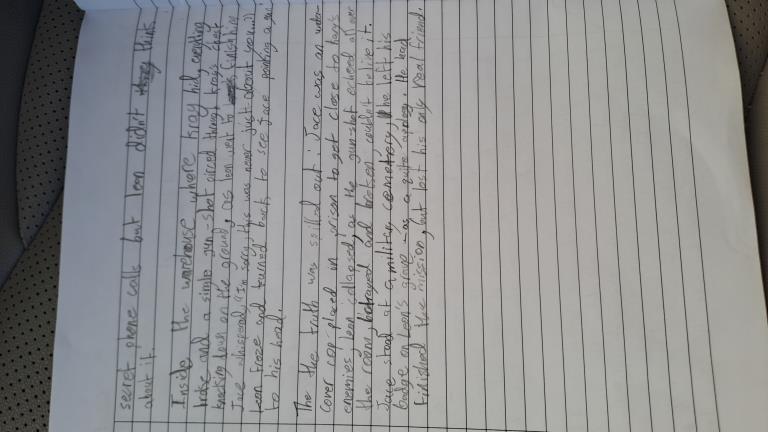 secret phone calls but leon didn't think
about it.
Inside the warehouse where kray hid, everything
broke and a single gun-shot pirced through krays chest
knocking down on the ground, as leon went to finish him
Jace whispered, "I'm sorry, this was never just about you..."
Leon froze and turned back to see Jace pointing a gun
to his head.
The the truth was spilled out. Jace was an under-
cover cop placed in prison to get close to leon's
enemies leon collapsed, as the gun-shot echoed all over
the room, betrayed and broken couldn't belive it.
Jace stood at a military cemetory, he left his
badge on Leon's grave - as a quite apology. He had
finished the mission, but lost his only real friend.